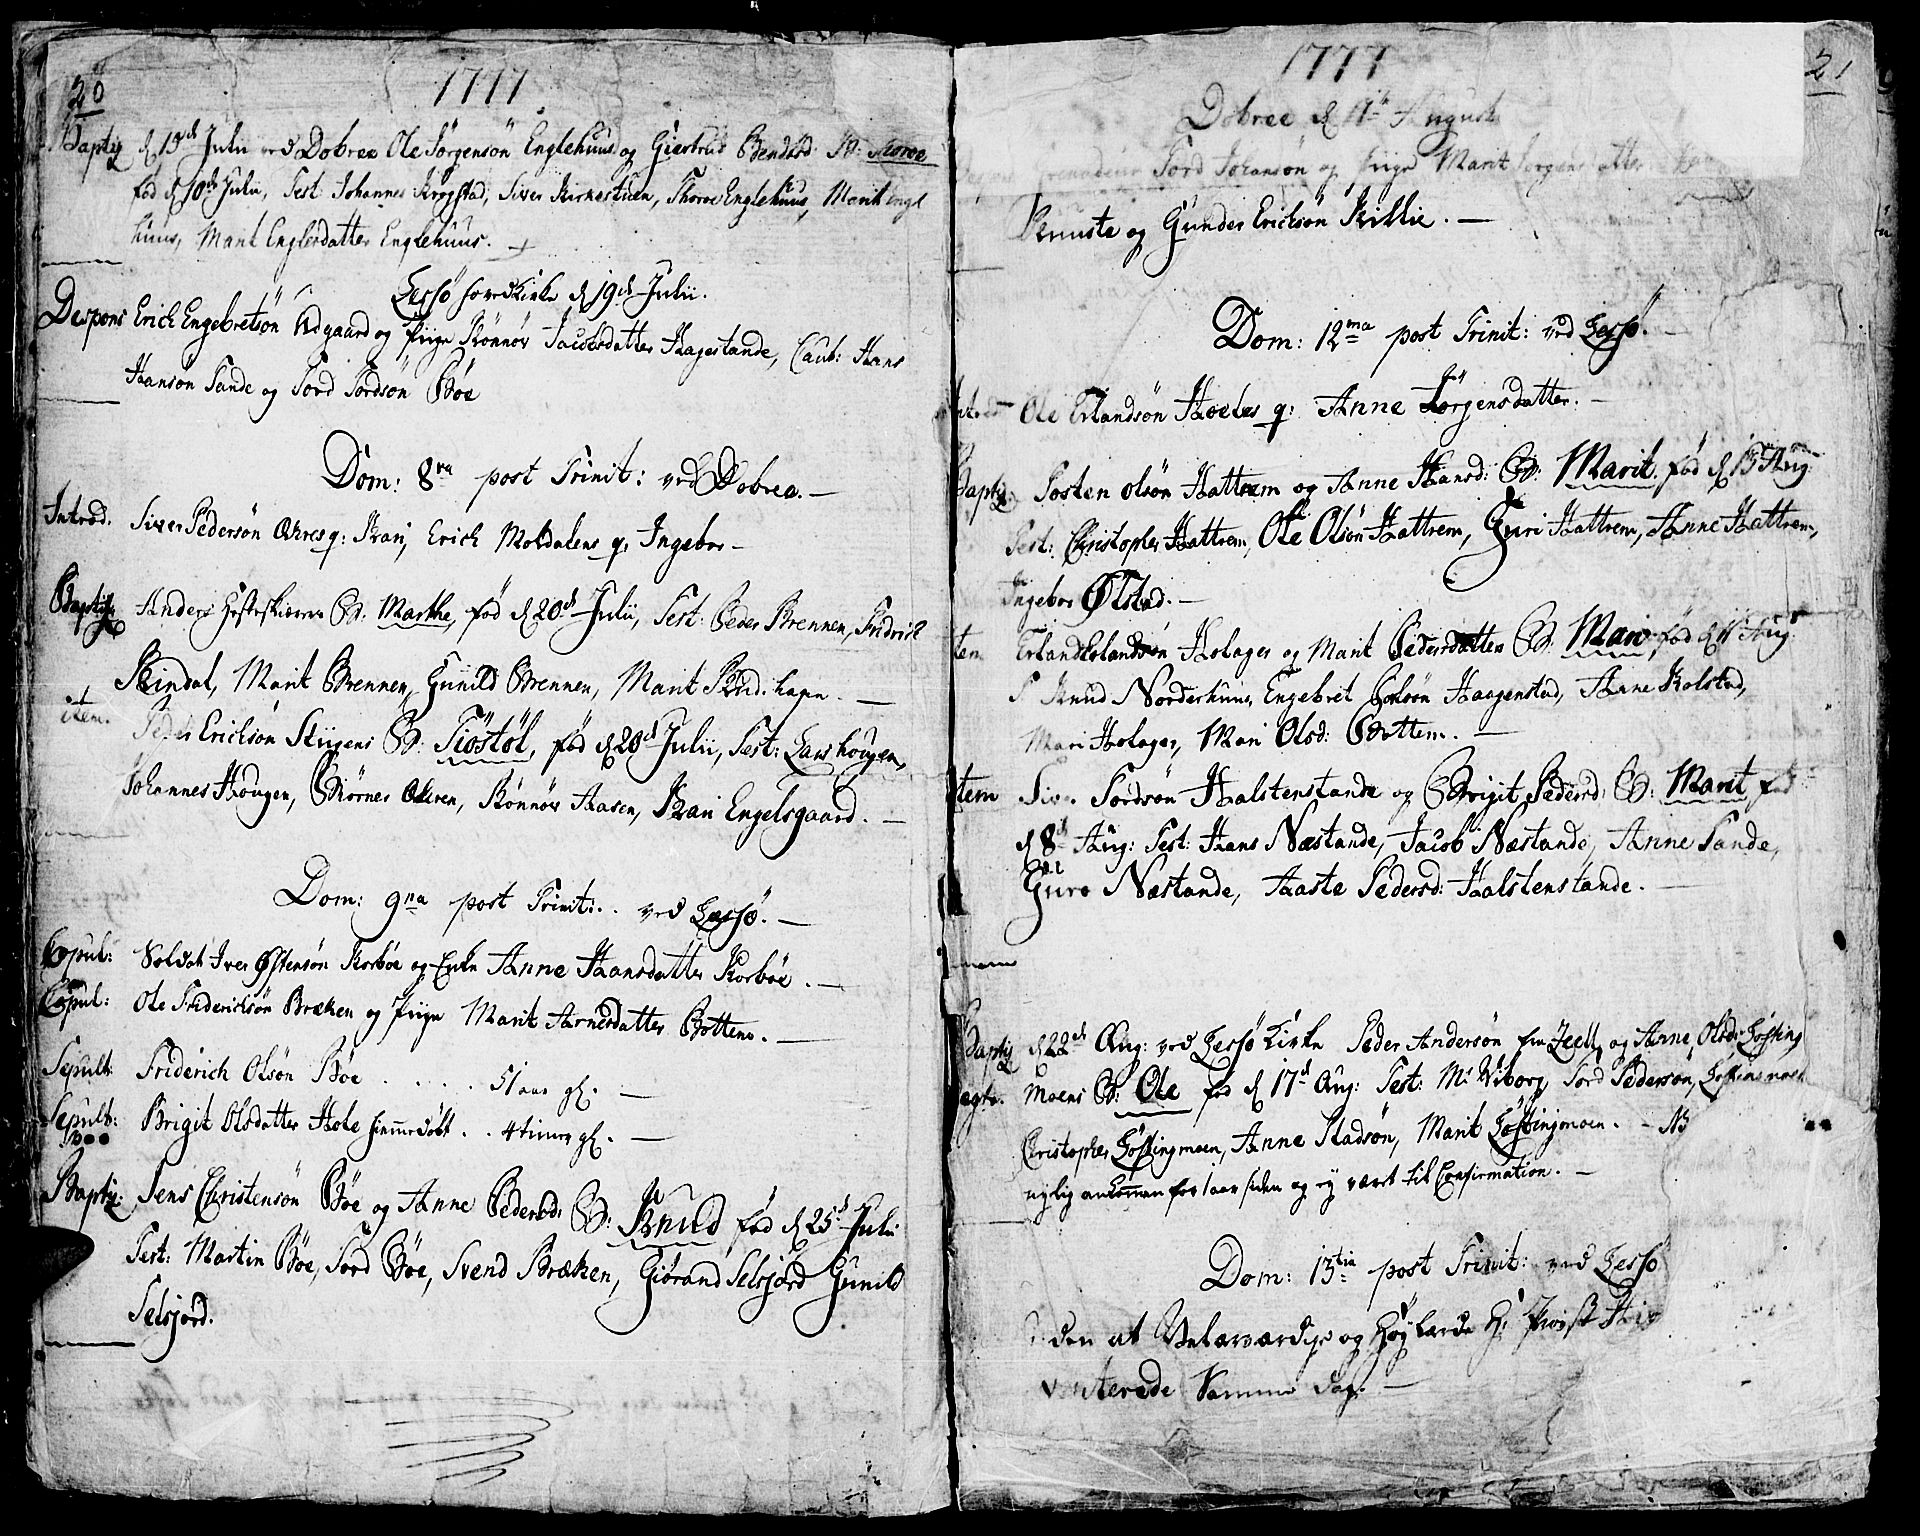 20
1777
Baptiz d 13d Julii ved Dobree Ole Jørgensøn Englehuus og Giertrud Bendsd: B: Thoroe
fød d 10d Julii, Test: Johannes Krogstad, Siver Kirkestuen, Thoroe Englehuus, Marit Engl
huus, Marit Englersdatter Englehuus.
Lessø hovedkirke d 19d Julii.
Despons Erich Engebretsøn Udgaard og Pige Rønnøv Jacobsdatter Hagestande, Caut: Hans
Hansøn Sande og Tord Tordsøn Bøe
Dom: 8va post Trinit: ved Dobree.
Introd. Siver Pedersøn q: Kari, Erich Moldalens q: Ingebor
Baptiz Anders B: Marthe, fød d 20d Julii, Test: Peder Brennen, Fridrich
Kindal, Marit Brennen, Gunild Brennen, Marit
item. Peder Erichsøn Stiigens B: Siøstøl, fød d 20d Julii, Test: Lars hougen,
Johannes Hougen, Biørner Olsen, Rønnøv Aasen, Kari Engelsgaard.
Dom: 9na post Trinit: ved Lessø.
Copul: Soldat Iver Østensøn Korbøe og Enke Anne Hansdatter Korbøe.
Copul: Ole Friderichsøn Bræken og Pige Marit Arnesdatter Bottem.
Sepult: Friderich Olsøn Bøe . . . . . 51 aar gl.
Sepult: Brigit Olsdatter Hole hiemmedøbt . . 4 timer gl.
Baptiz: Jens Christensøn Bøe og Anne Pedersd: B: Knud fød d 25d Julii
Test: Martin Bøe, Tord Bøe, Svend Bræken, Giørand Selsjord Gunild
Selsjord.
21
1777
Dobree d 11te August
Grenadeur Tord Johansøn og Pige Marit Jørgensdatter
Knuste og Gunder Erichsøn Killie.
Dom: 12ma post Trinit: ved Lessø.
Introd Ole Erlandsøn q: Anne Jørgensdatter.
Baptiz Tosten Olsøn Hattrem og Anne Hansd: B: Marit fød d 13 Aug
Test: Christopher Hattrem, Ole Olsøn Hattrem, Guri Hattrem, Anne Hattrem,
Ingebor Ølstad.
tem Erland Erlandsøn Holager og Marit Pedersdatter B: Mari fød d Aug:
T Knud Norderhuus, Engebret Haagenstad, Anne Kolstad,
Mari Holager, Mari Olsd: Bottem.
tem Siver Tordsøn Halstenstande og Brigit Pedersd: B: Marit fød
d 8d Aug: Test: Hans Næstande, Jacob Næstande, Anne Sande,
Guro Næstande, Aaste Pedersd: Halstenstande.
Baptiz d 22d Aug: ved Lessø Kirke Peder Andersøn fra og Anne Olsdr Løfting
Moens B: Ole fød d 17d Aug: Test: Mr Wiborg, Tord Pedersøn, Løftingmoen
Christopher Løftingmoen, Anne Madsøn, Marit Løftingmoen. - N3
nylig ankommen for 1 aar siden og ey været til Confirmation.
Dom: 13tia post Trinit: ved Lessø
den at Velærværdige og Høylærde Hr Provst
Samme Dag.